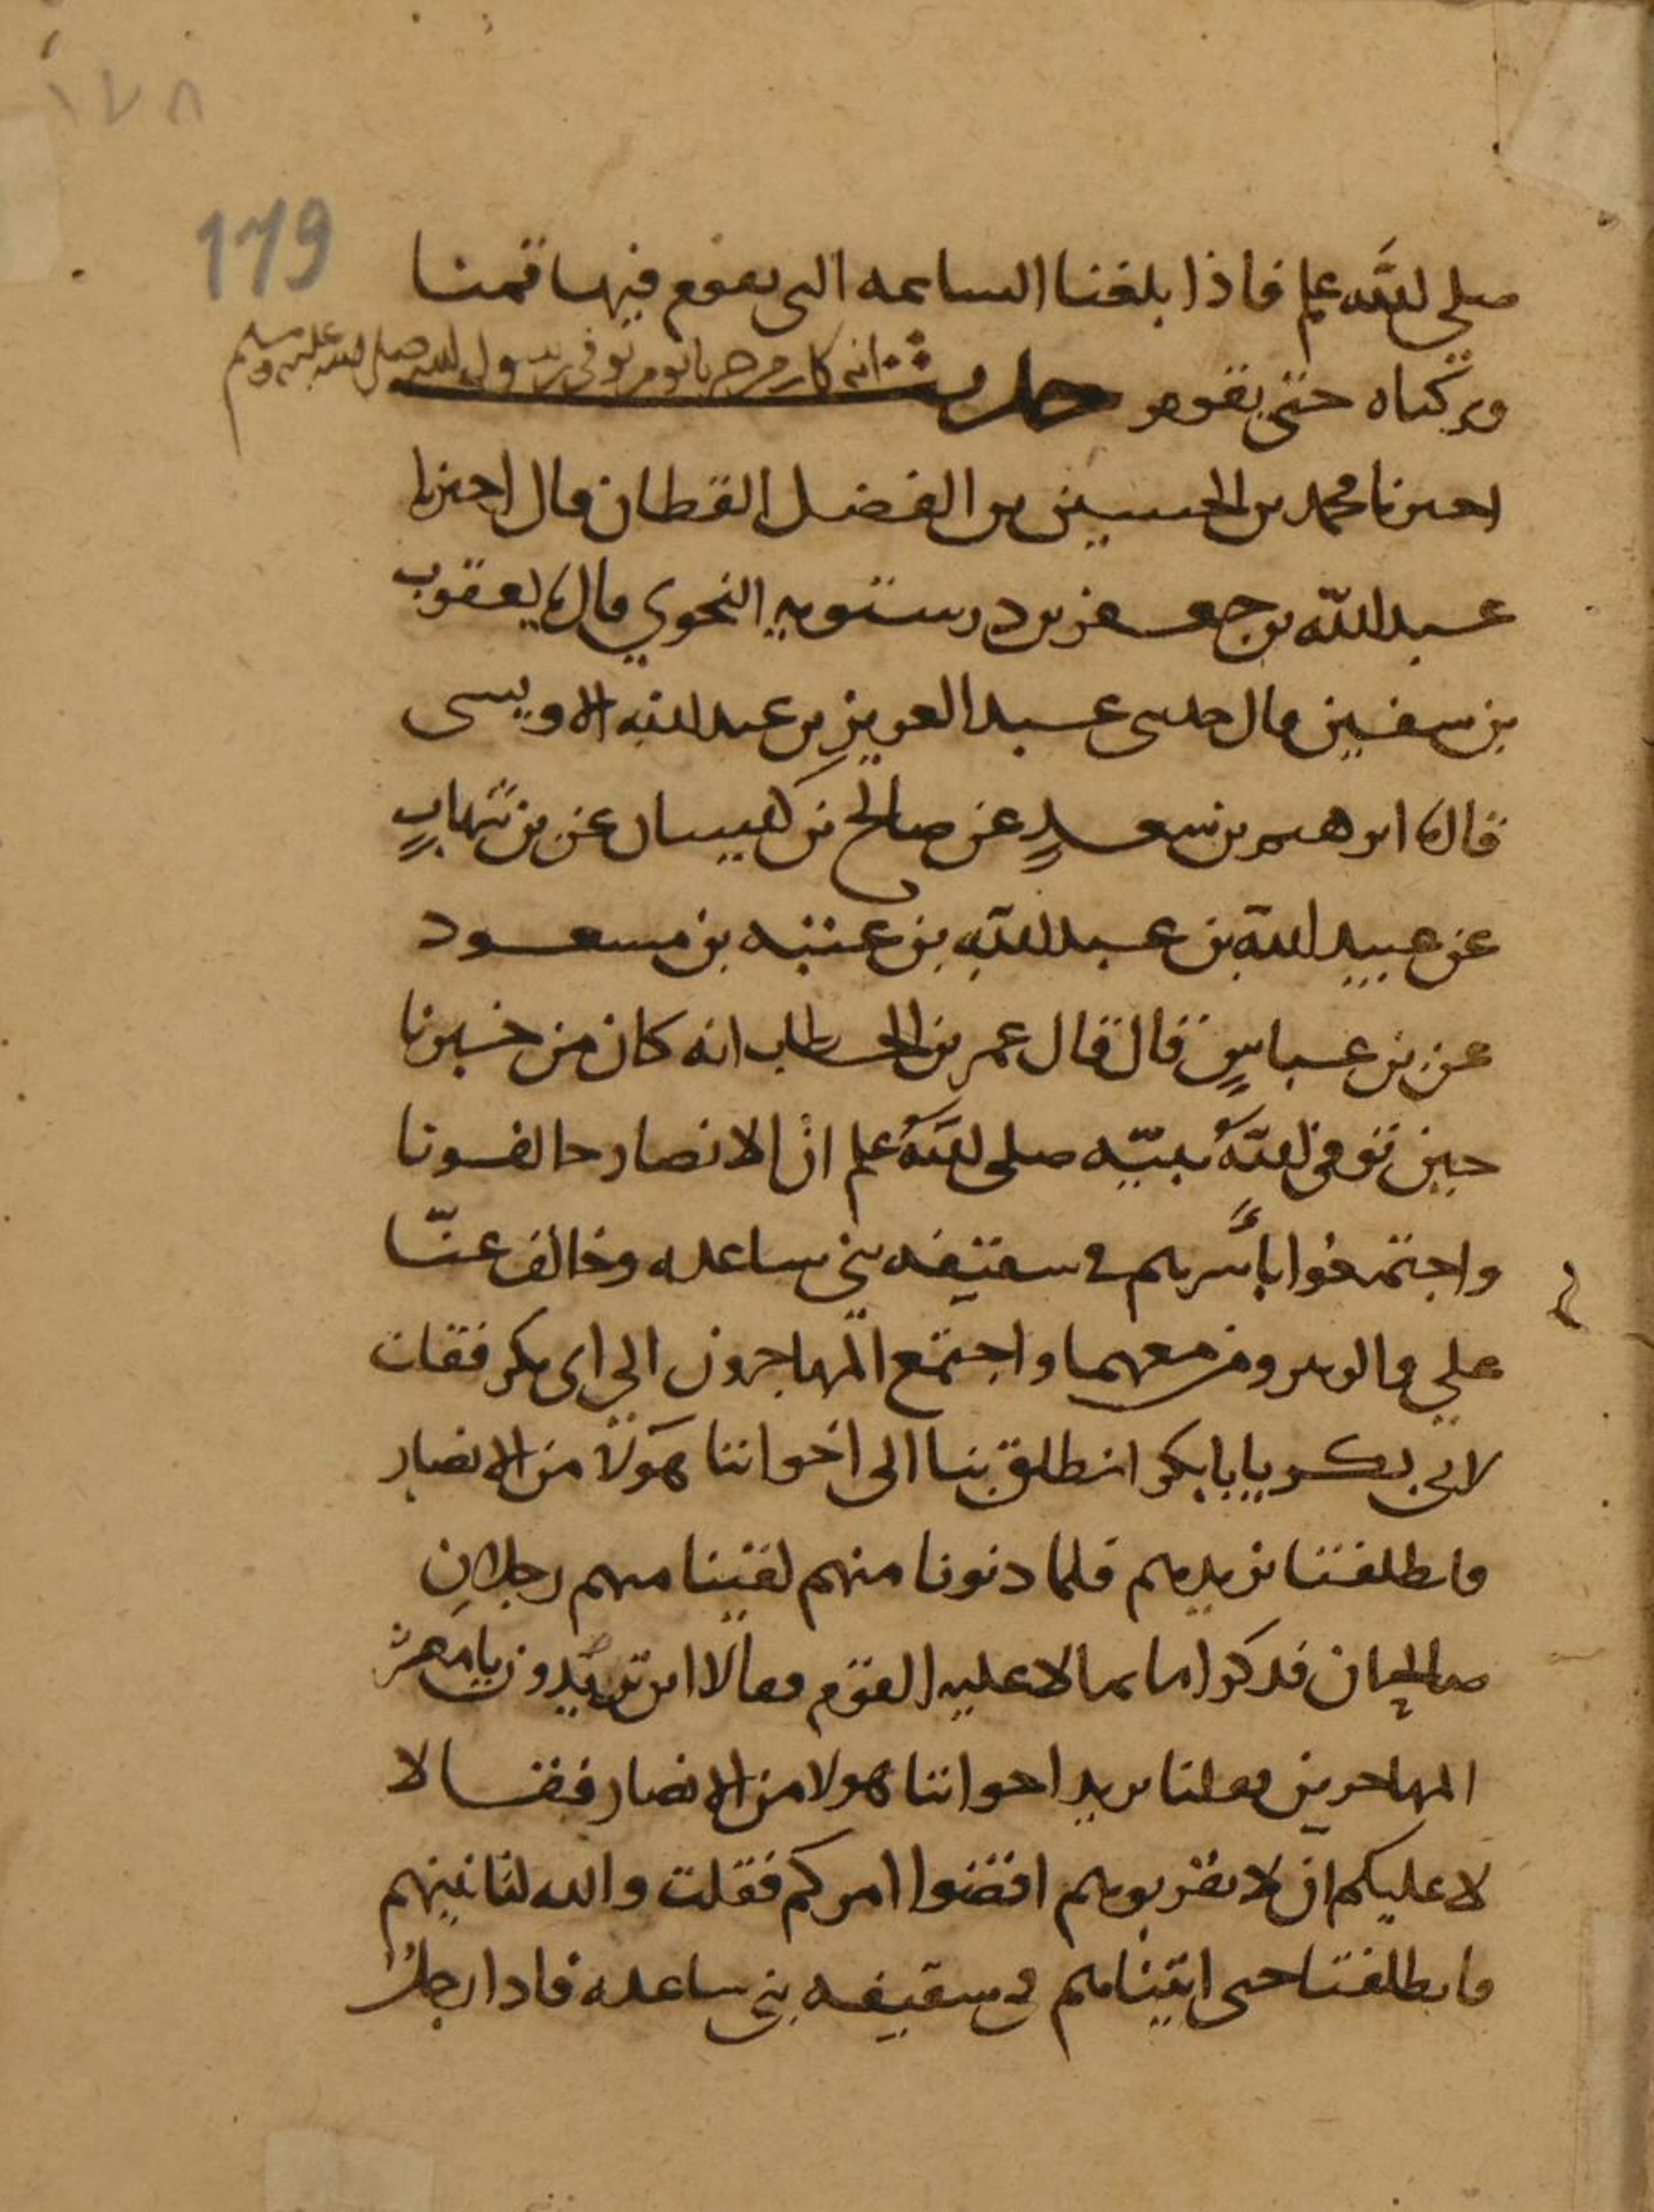 ١٧٨
179
صلى الله علم فاذا بلغنا الساعه التى يقوم فيها قمنا
وتركناه حتى يقوم حديث انه كان من خبرنا يوم توفى رسول الله صلى الله عليه وسلم
احبرنا محمد بن الحسين بن الفضل القطان قال احبرنا
عبد الله بن جعفر بن درستويه النحوي قال نا يعقوب
بن سفين قال حدثنى عبد العزيز بن عبد الله الاويسى
قال نا ابرهيم بن سعدٍ عن صالح بن كيسان عن بن شهابٍ
عن عبيد الله بن عبد الله بن عتبه بن مسعود
عن بن عباسٍ قال قال عمر بن الخطاب انه كان من خبرنا
حين توفى اللهُ نبيّه صلى اللهُ علم انّ الانصار خالفونا
واجتمعوا باسرهم في سقيفه بني ساعده وخالف عنّا
علي والزبير ومن معهما واجتمع المهاجرون الي ابى بكر فقلت
لابى بكر يابابكر انطلق بنا الى اخواننا هولا من الانصار
فانطلقنا نريدهم فلما دنونا منهم لقينا منهم رجلان
صالحان فذكرا ما تمالا عليه القوم فقالا اين تريدون يا معشر
المهاجرين فقلنا نريد اخواننا هولا من الانصار فقالا
لا عليكم ان لا تقربوهم اقضوا امركم فقلت والله لناتينهم
فانطلقنا حتى اتيناهم في سقيفه بني ساعده فاذا رجلٌ